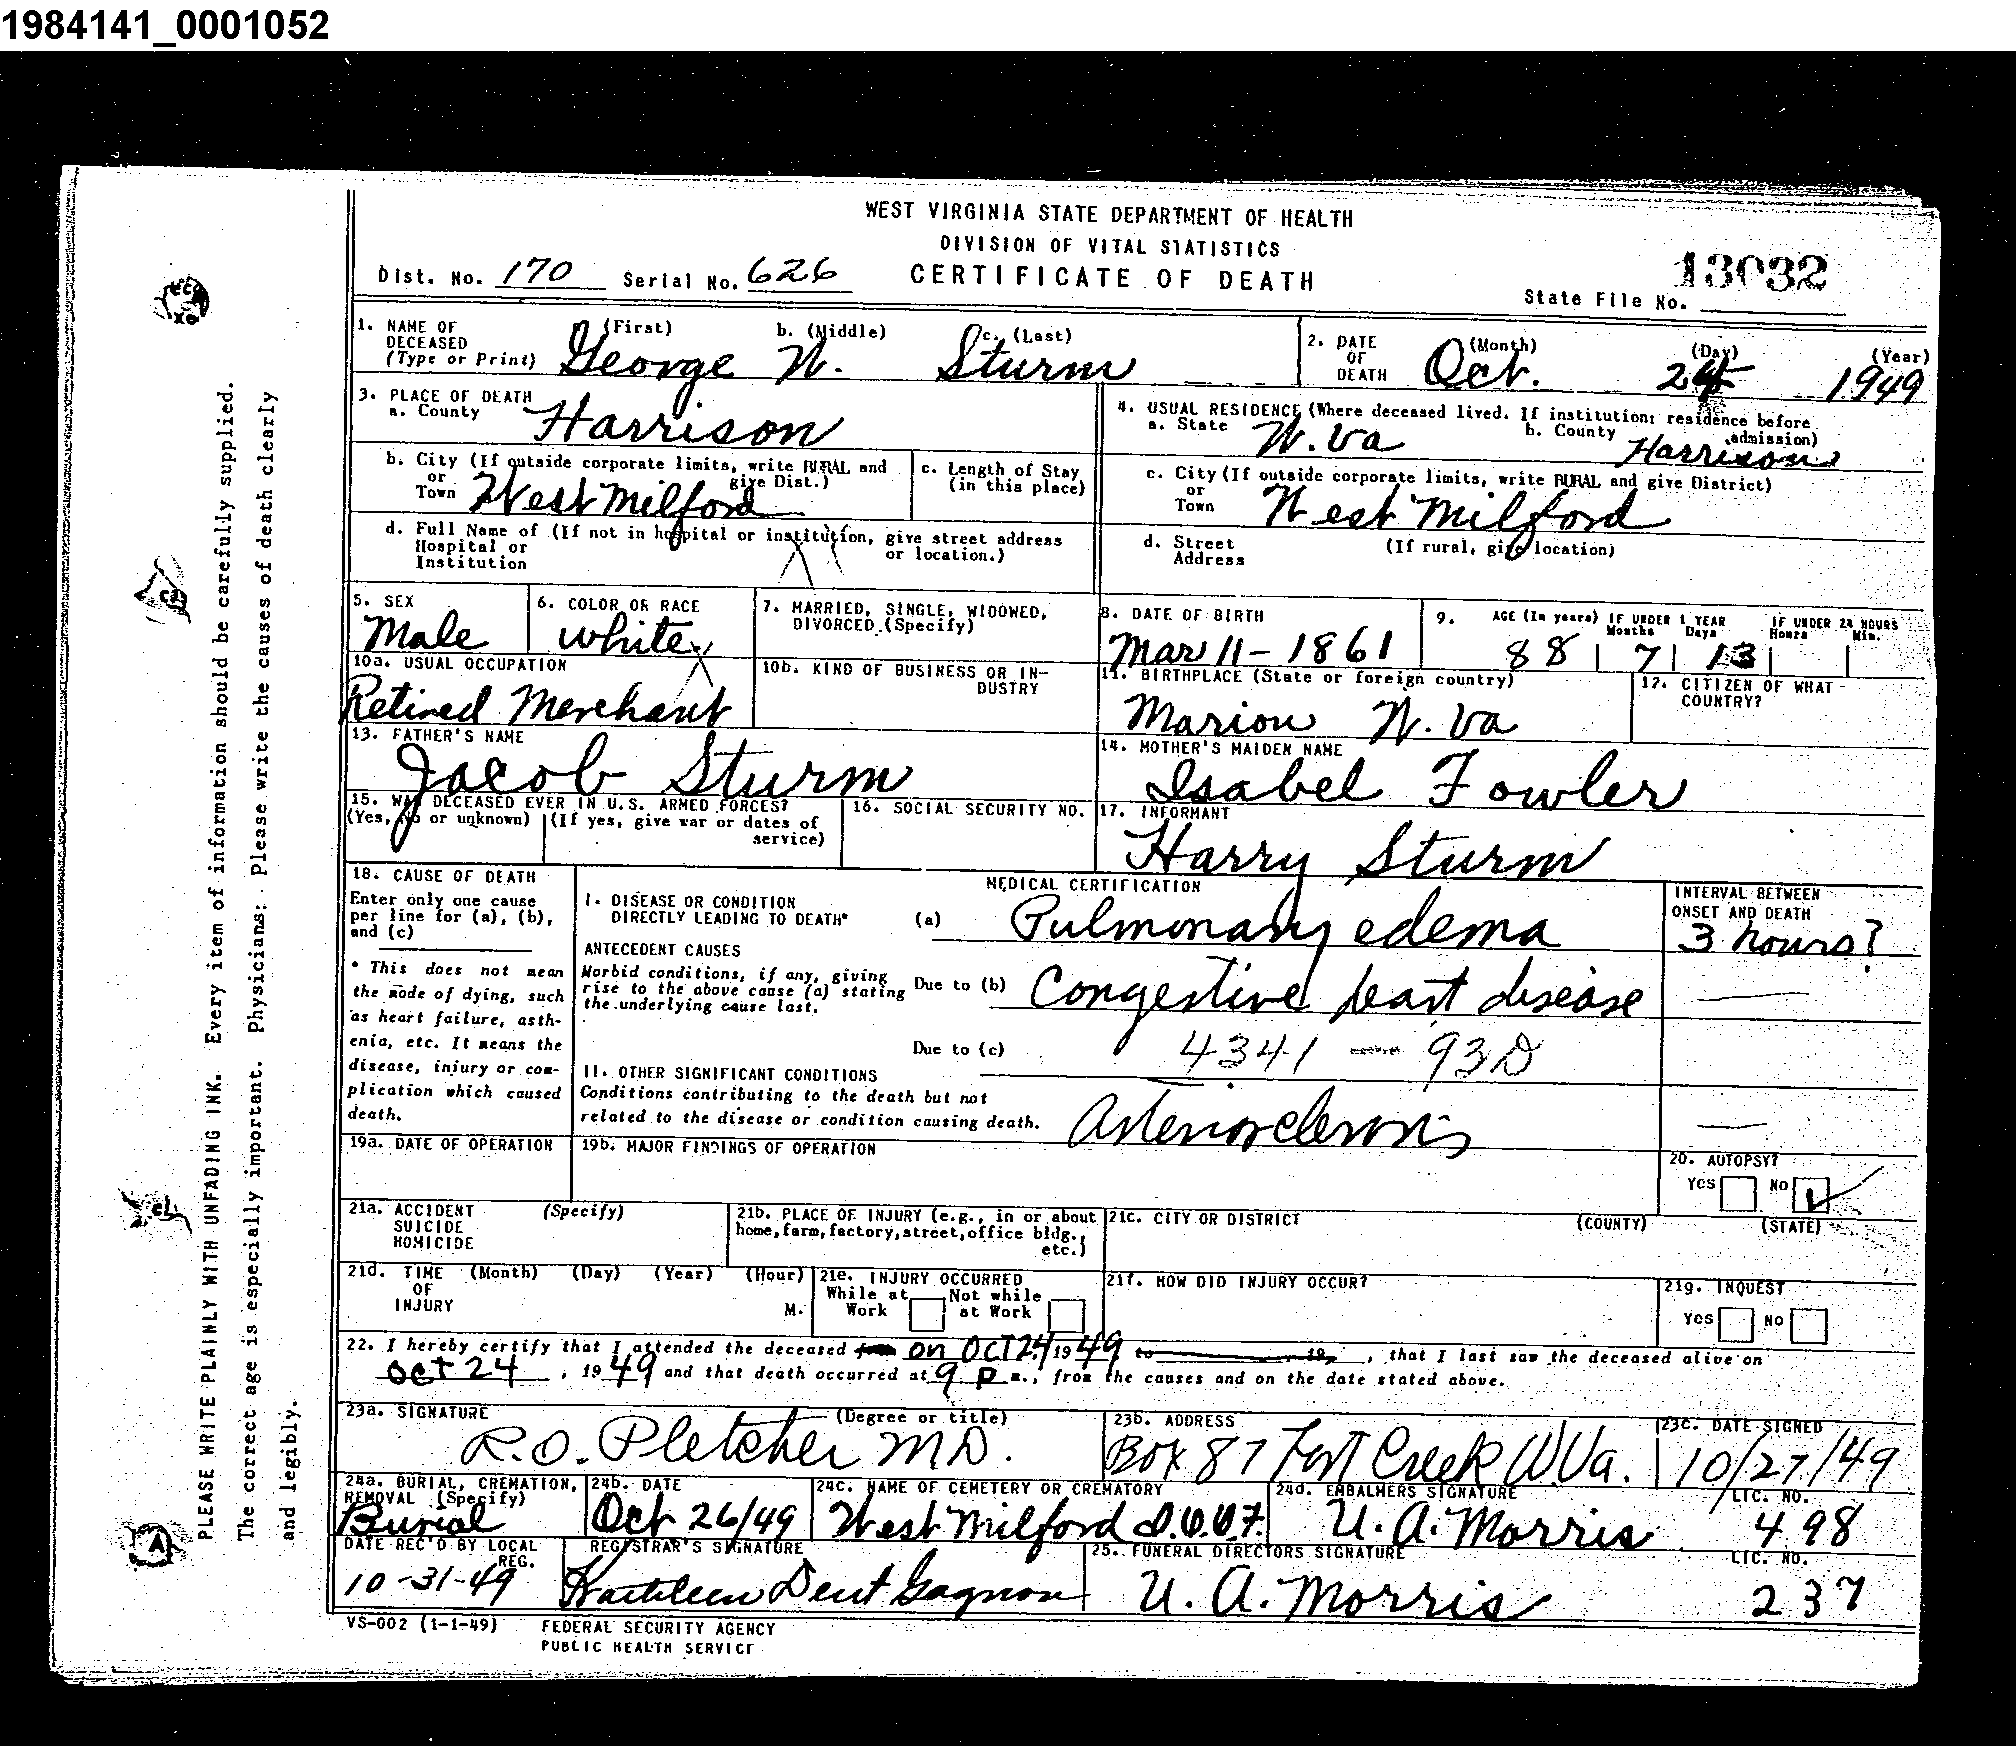 1984141_0001052
WEST VIRGINIA STATE DEPARTMENT OF HEALTH
DIVISION OF VITAL STATISTICS
CERTIFICATE OF DEATH
Dist. No. 170 Serial No. 626
13032
State File No.
1. NAME OF DECEASED (Type or Print) (First) b. (Middle) c. (Last)
George W. Sturm
2. DATE OF DEATH (Month) (Day) (Year)
Oct. 24 1949
3. PLACE OF DEATH
a. County Harrison
b. City (If outside corporate limits, write RURAL and give Dist.)
or Town West Milford
c. Length of Stay (in this place)
d. Full Name of (If not in hospital or institution, give street address or location.)
Hospital or Institution
4. USUAL RESIDENCE (Where deceased lived. If institution: residence before admission)
a. State W. Va b. County Harrison
c. City (If outside corporate limits, write RURAL and give District)
or Town West Milford
d. Street Address (If rural, give location)
5. SEX
Male
6. COLOR OR RACE
White
7. MARRIED, SINGLE, WIDOWED, DIVORCED (Specify)
8. DATE OF BIRTH
Mar 11 - 1861
9. AGE (In years) IF UNDER 1 YEAR Months Days IF UNDER 24 HOURS Hours Min.
88 7 13
10a. USUAL OCCUPATION
Retired Merchant
10b. KIND OF BUSINESS OR INDUSTRY
11. BIRTHPLACE (State or foreign country)
Marion W. Va
12. CITIZEN OF WHAT COUNTRY?
13. FATHER'S NAME
Jacob Sturm
14. MOTHER'S MAIDEN NAME
Isabel Fowler
15. WAS DECEASED EVER IN U.S. ARMED FORCES?
(Yes, No or unknown) (If yes, give war or dates of service)
16. SOCIAL SECURITY NO.
17. INFORMANT
Harry Sturm
18. CAUSE OF DEATH
Enter only one cause per line for (a), (b), and (c)
* This does not mean the mode of dying, such as heart failure, asthenia, etc. It means the disease, injury or complication which caused death.
MEDICAL CERTIFICATION
INTERVAL BETWEEN ONSET AND DEATH
I. DISEASE OR CONDITION DIRECTLY LEADING TO DEATH* (a) Pulmonary edema 3 hours?
ANTECEDENT CAUSES
Morbid conditions, if any, giving rise to the above cause (a) stating the underlying cause last.
Due to (b) Congestive heart disease
Due to (c) 4341 — 93D
II. OTHER SIGNIFICANT CONDITIONS
Conditions contributing to the death but not related to the disease or condition causing death.
Arteriosclerosis
19a. DATE OF OPERATION
19b. MAJOR FINDINGS OF OPERATION
20. AUTOPSY?
Yes No
21a. ACCIDENT SUICIDE HOMICIDE (Specify)
21b. PLACE OF INJURY (e.g., in or about home, farm, factory, street, office bldg., etc.)
21c. CITY OR DISTRICT (COUNTY) (STATE)
21d. TIME OF INJURY (Month) (Day) (Year) (Hour) M.
21e. INJURY OCCURRED
While at Work Not while at Work
21f. HOW DID INJURY OCCUR?
21g. INQUEST
Yes No
22. I hereby certify that I attended the deceased from on OCT 24 1949 to 19 , that I last saw the deceased alive on
OCT 24 , 1949 and that death occurred at 9 P m., from the causes and on the date stated above.
23a. SIGNATURE (Degree or title)
R.O. Pletcher MD.
23b. ADDRESS
Box 87 Creek W Va.
23c. DATE SIGNED
10/27/49
24a. BURIAL, CREMATION, REMOVAL (Specify)
Burial
24b. DATE
Oct 26/49
24c. NAME OF CEMETERY OR CREMATORY
West Milford I.O.O.F.
24d. EMBALMERS SIGNATURE LIC. NO.
U. A. Morris 498
DATE REC'D BY LOCAL REG.
10-31-49
REGISTRAR'S SIGNATURE
Kathleen Dent Gagnon
25. FUNERAL DIRECTORS SIGNATURE LIC. NO.
U. A. Morris 237
VS-002 (1-1-49) FEDERAL SECURITY AGENCY
PUBLIC HEALTH SERVICE
PLEASE WRITE PLAINLY WITH UNFADING INK. Every item of information should be carefully supplied.
The correct age is especially important. Physicians: Please write the causes of death clearly
and legibly.